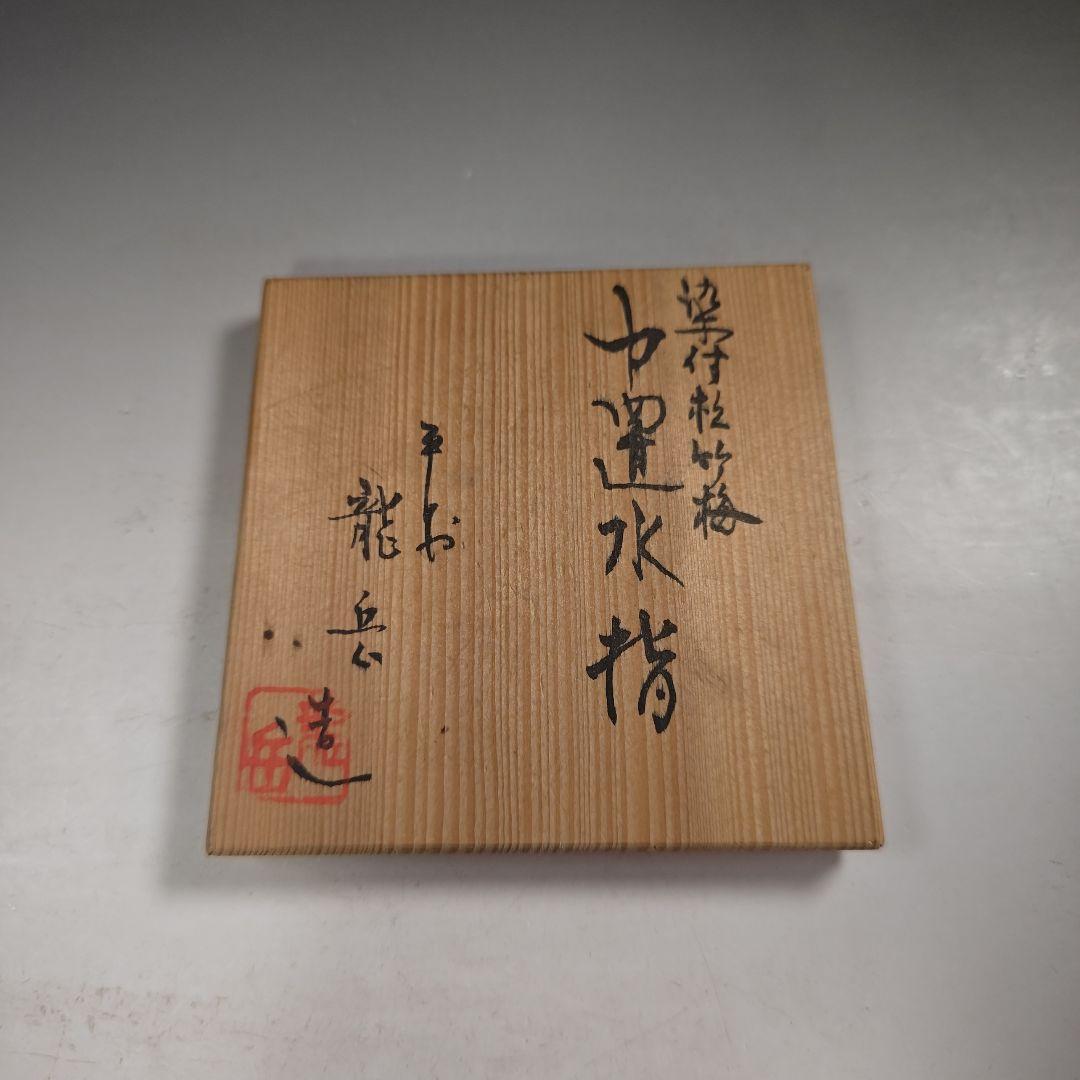 染付松竹梅
中置水指
平安
龍岳造
龍岳